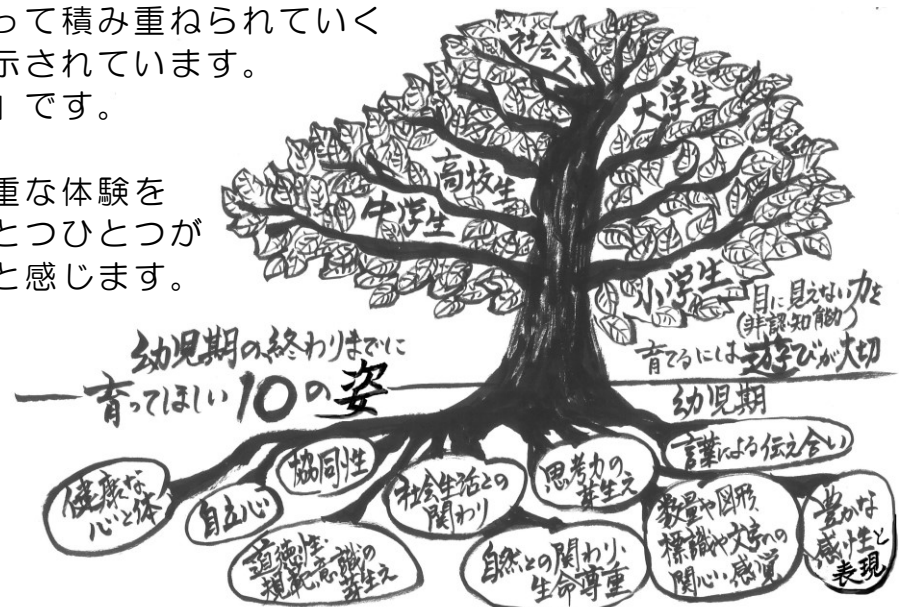 って積み重ねられていく
示されています。
」です。
重な体験を
とつひとつが
と感じます。
社会人
大学生
高校生
中学生
小学生
目に見えない力を
(非認知能力)
育てるには遊びが大切
幼児期の終わりまでに
育ってほしい10の姿
幼児期
健康な
心と体
自立心
協同性
道徳性・
規範意識の
芽生え
社会生活との
関わり
自然との関わり・
生命尊重
思考力の
芽生え
数量や図形
標識や文字への
関心・感覚
言葉による伝え合い
豊かな
感性と
表現